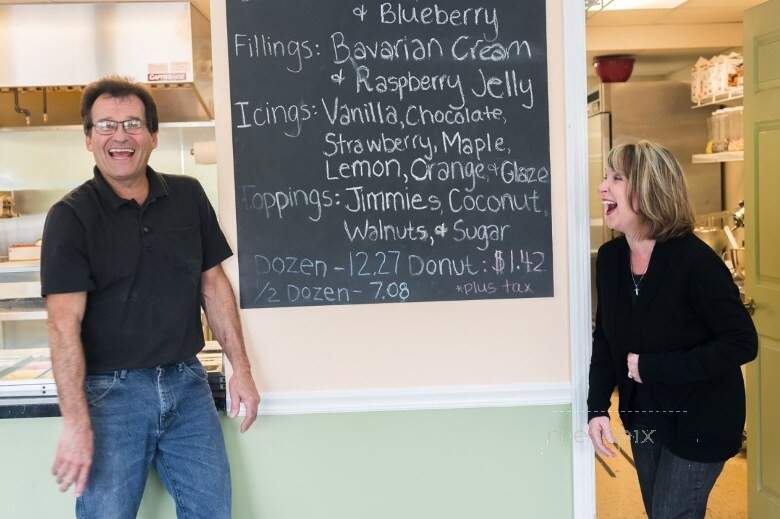 & Blueberry
Fillings: Bavarian Cream
& Raspberry Jelly
Icings: Vanilla, Chocolate,
Strawberry, Maple,
Lemon, Orange, & Glaze
Toppings: Jimmies, Coconut,
Walnuts, & Sugar
Dozen - 12.27 Donut: $1.42
1/2 Dozen - 7.08 *plus tax